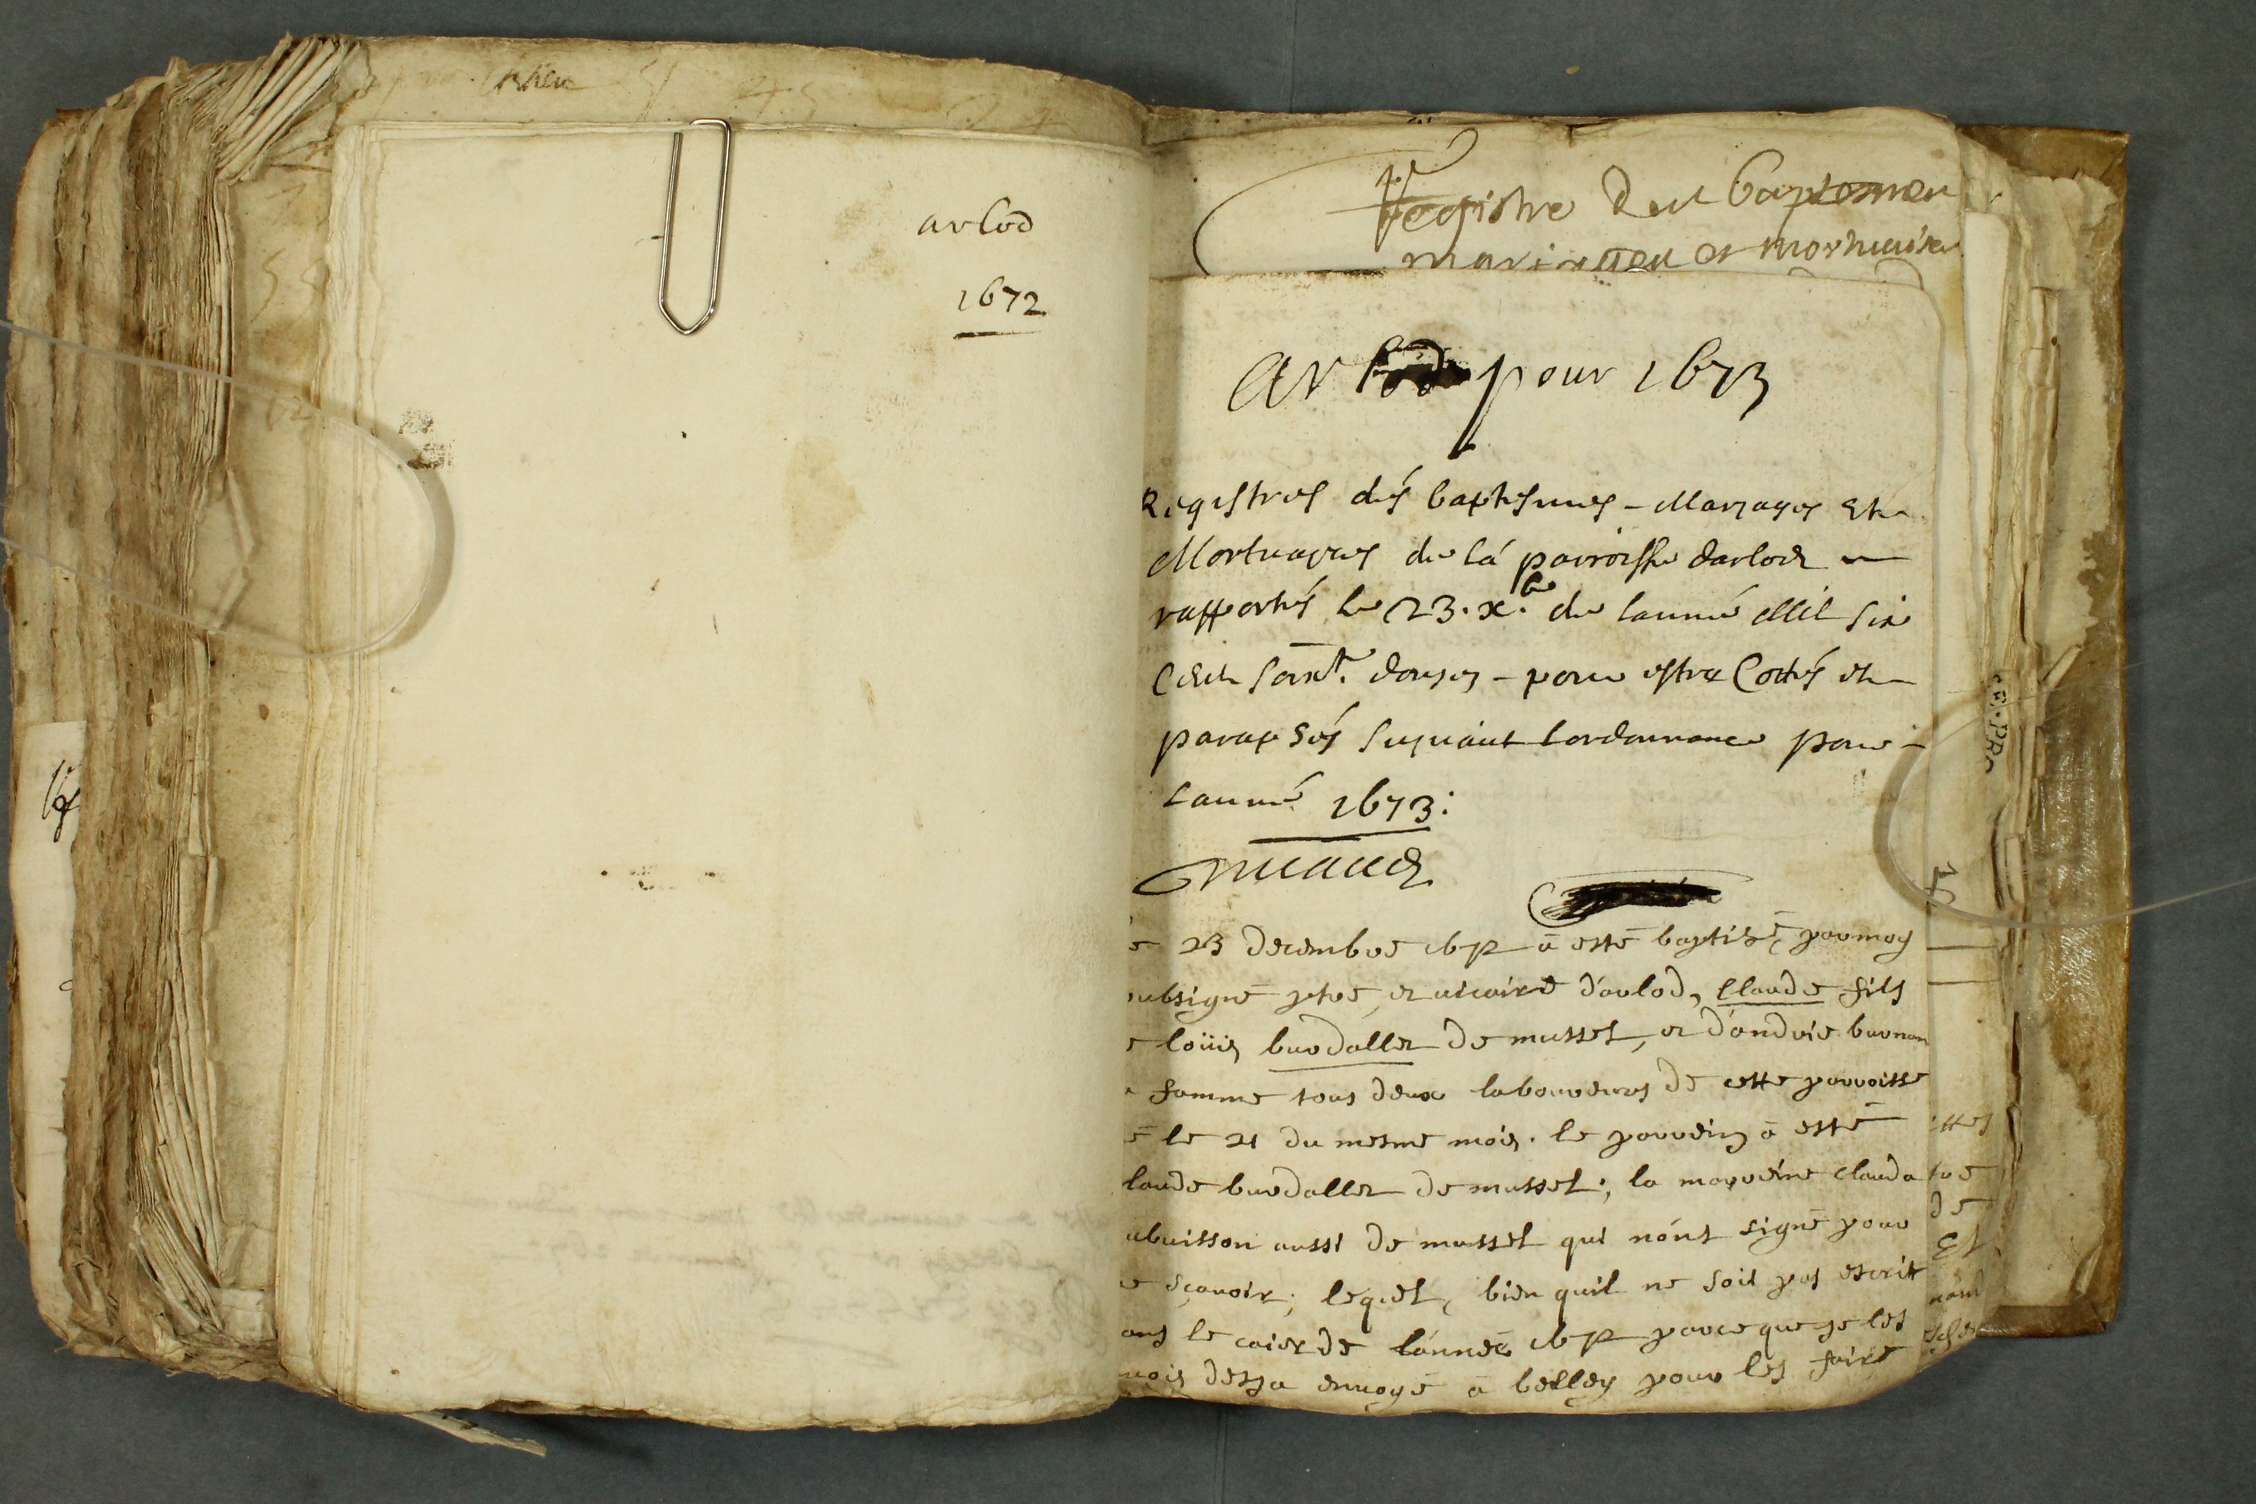 arlod
1672
Registre des baptesmes
mariages et mortuaises
Arlod pour 1673
Registres dés baptesmes - Mariages Et
Mortuayres de lá parroisse darlod
rapportés le 23. xbe. de lanné Mil six
Cent soixte. douzes - pour estre Cottés et
paraphés suyuant lordonnance pour
Lanné 1673:
e 23 decembre 1672 à esté baptisé, par moy
oubsigné ptre, et uicaire d'arlod, Claude fils
e loüis burdallet de musset, et d'andrée
a famme tous deux laboureurs de cette parroisse
é le 21 du mesme mois. le parrein à esté
laude burdallet de musset; la marreine clauda
ubuisson aussi de musset qui n'ont signé pour
e sçauoir; lequel, bien quil ne soit pas escritt
ans le caier de l'année 1672 parce que je les
uois desja enuoyé à belley pour les faire